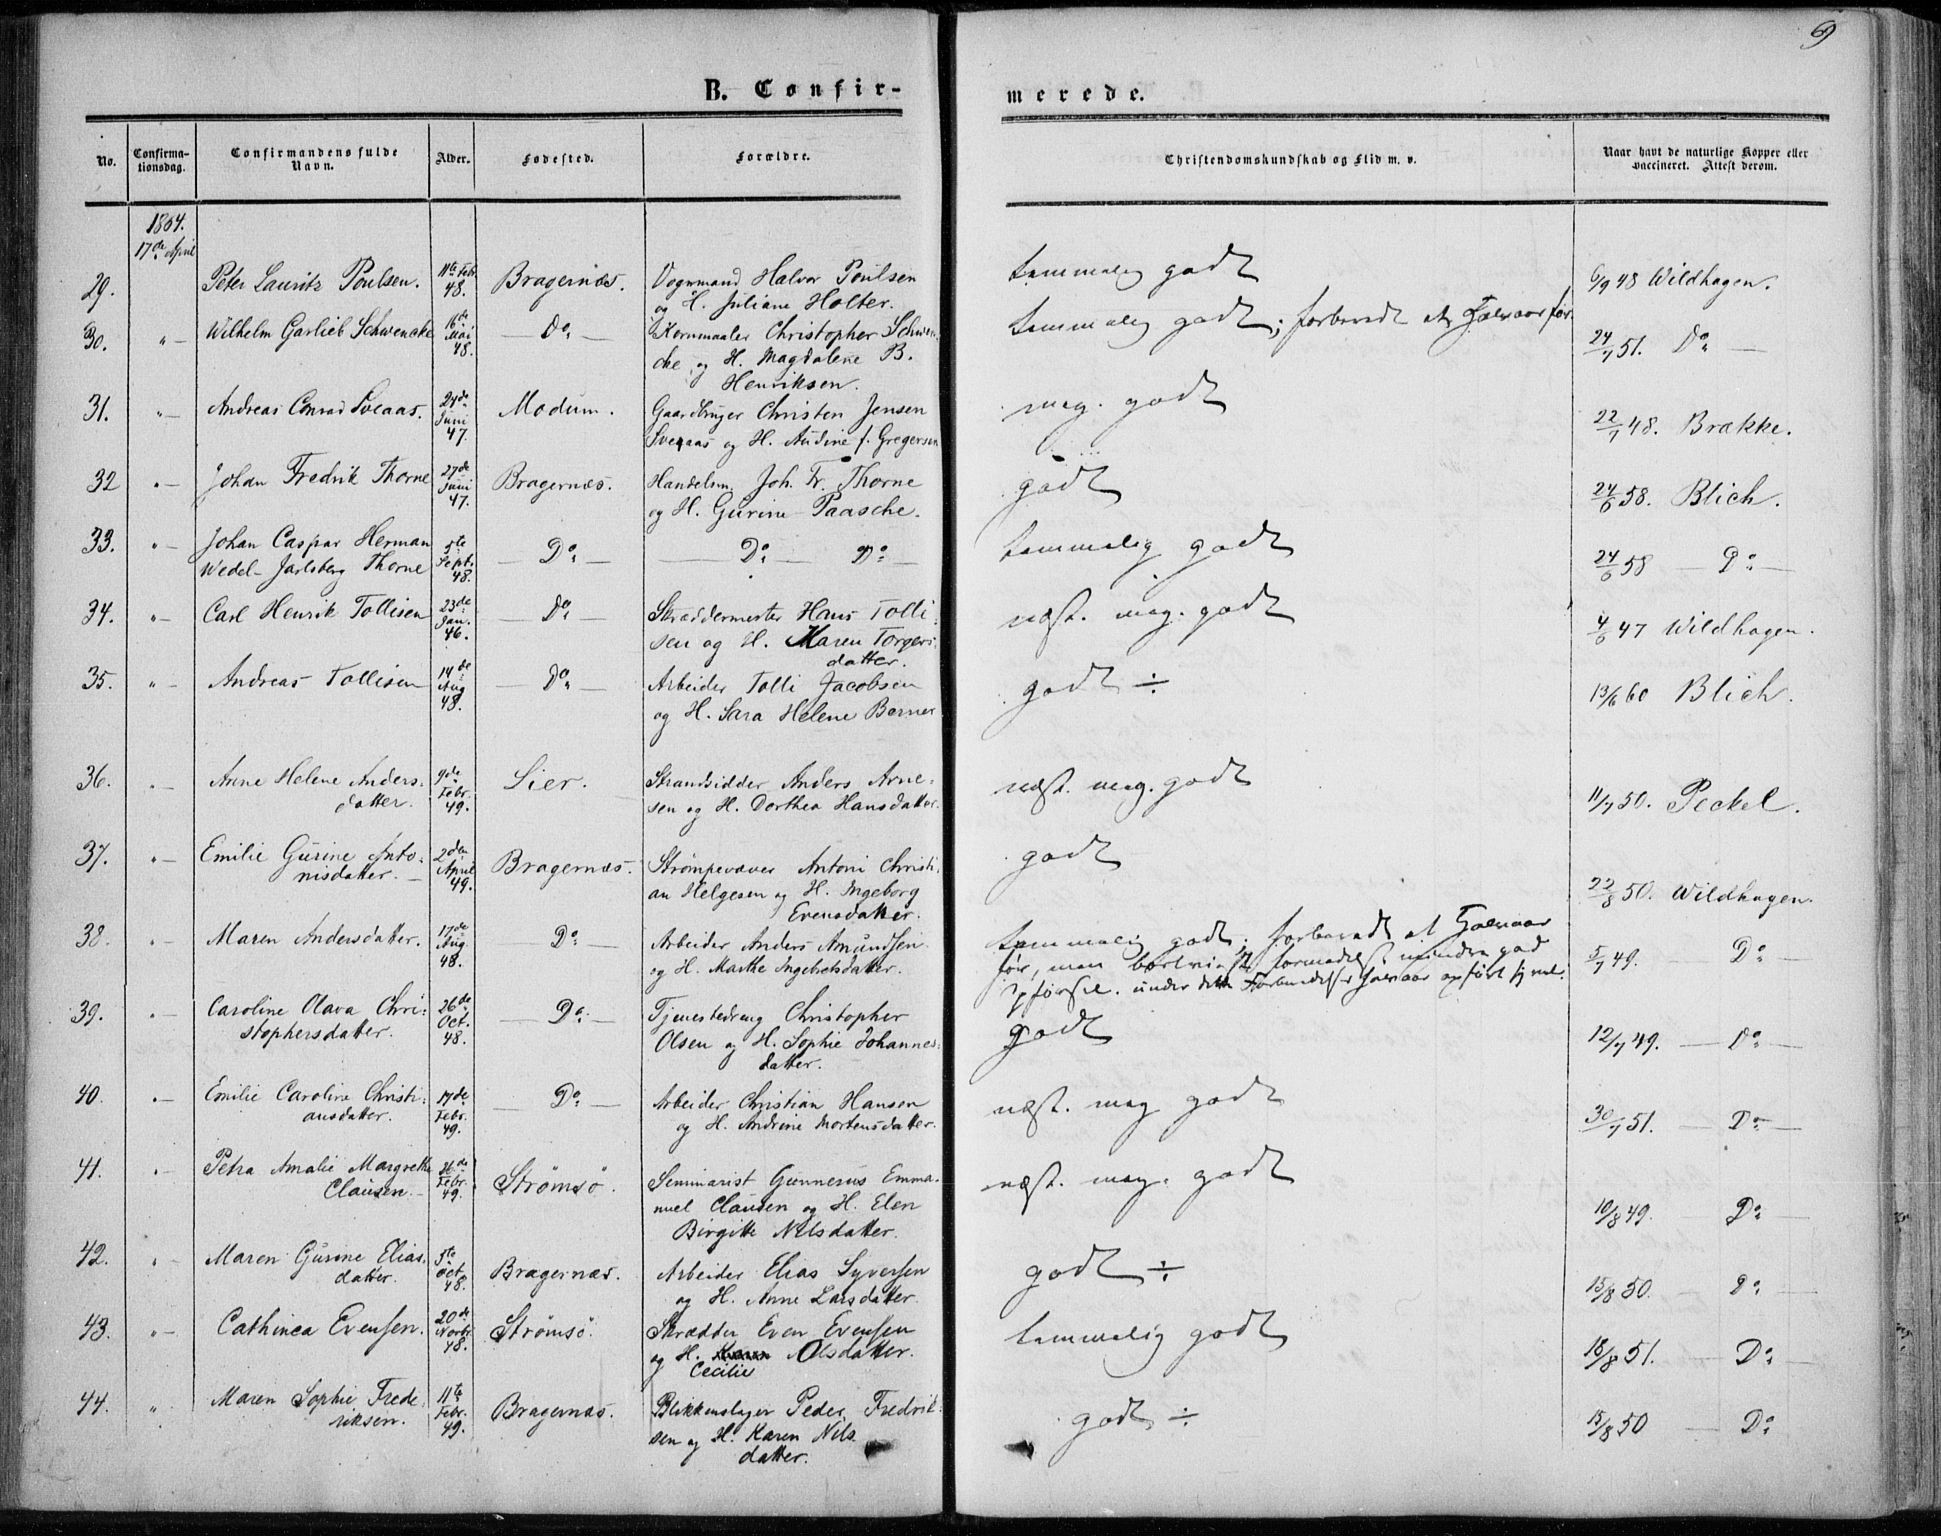 9
B. Confir-
merede.
No. Confirma-tionsdag. Confirmandens fulde Navn. Alder. Fødested. Forældre. Christendomskundskab og Flid m. v. Naar havt de naturlige Kopper eller vaccineret. Attest derom.
1864.
17de April
29. Peter Lauritz Poulsen. 11te Febr. 48. Bragernæs. Vogmand Halvor Poulsen temmelig godt 6/9 48 Wildhagen.
og H. Juliane Holter.
30. " Wilhelm Garlieb Schwencke 16de Mai 48. Do Kornmaaler Christopher Schwen- temmelig godt; forberedt et Halvaar før. 24/7 51. Do
cke og H. Magdalene B.
Henriksen.
31. " Andreas Conrad Sveaas. 24de Juni 47. Modum. Gaardbruger Christen Jensen meg. godt 22/7 48. Brække.
Sveaas og H. Andine f. Gregersen
32 " Johan Fredrik Thorne 27de Juni 47. Bragernæs. Handelsm. Joh. Fr. Thorne godt 24/6 58. Blich.
og H. Gurine Paasche.
33. " Johan Caspar Herman 5te Sept. 48. Do Do Do temmelig godt 24/6 58 Do
Wedel-Jarlsberg Thorne
34. " Carl Henrik Tollisen 23de Jan. 46. Do Skræddermester Hans Tolli- næst. meg. godt 4/6 47 Wildhagen.
sen og H. Maren Torgers-
datter.
35. " Andreas Tollisen 14de Aug 48. Do Arbeider Tolli Jacobsen godt ÷ 13/6 60 Blich.
og H. Sara Helene Berner
36. " Anne Helene Anders- 9de Febr. 49. Lier. Strandsidder Anders Arne- næst. meg. godt 11/7 50. Peckel.
datter. sen og H. Dorthea Hansdatter.
37. " Emilie Gurine Anto- 2den April 49. Bragernæs. Strømpevæver Antoni Christi- godt 22/8 50. Wildhagen.
nisdatter. an Helgesen og H. Ingeborg
Evensdatter.
38. " Maren Andersdatter. 17de Aug. 48. Do Arbeider Anders Amundsen temmelig godt; forberedt et Halvaar 5/7 49. Do
og H. Marthe Ingebretsdatter. før, men bortvist formedelst mindre god
Opførsel. under dette Forberedelses Halvaar opført sig vel.
39. " Caroline Olava Chri- 26de Oct. 48. Do Tjenestedreng Christopher godt 12/7 49. Do
stophersdatter. Olsen og H. Sophie Johannes-
datter.
40. " Emilie Caroline Christi- 17de Febr. 49. Do Arbeider Christian Hansen næst. meg godt 30/7 51. Do
ansdatter. og H. Andrine Mortensdatter.
41. " Petra Amalie Margrethe 26de Febr. 49. Strømsö. Seminarist Gunnerus Emma- næst. meg. godt 10/8 49. Do
Clausen. nuel Clausen og H. Elen
Birgitte Nilsdatter.
42. " Maren Gurine Elias- 5te Oct. 48. Bragernæs. Arbeider Elias Syversen godt ÷ 15/8 50. Do
datter. og H. Anne Larsdatter.
43. " Cathinca Evensen. 20de Novbr. 48. Strømsö. Skrædder Even Evensen temmelig godt 18/8 51. Do
og H. Karen Olsdatter.
Cecilie
44. " Maren Sophie Frede- 11te Febr. 49. Bragernæs. Blikkenslager Peder Fredrik- godt ÷ 15/8 50 Do
riksen. sen og H. Karen Nils-
datter.